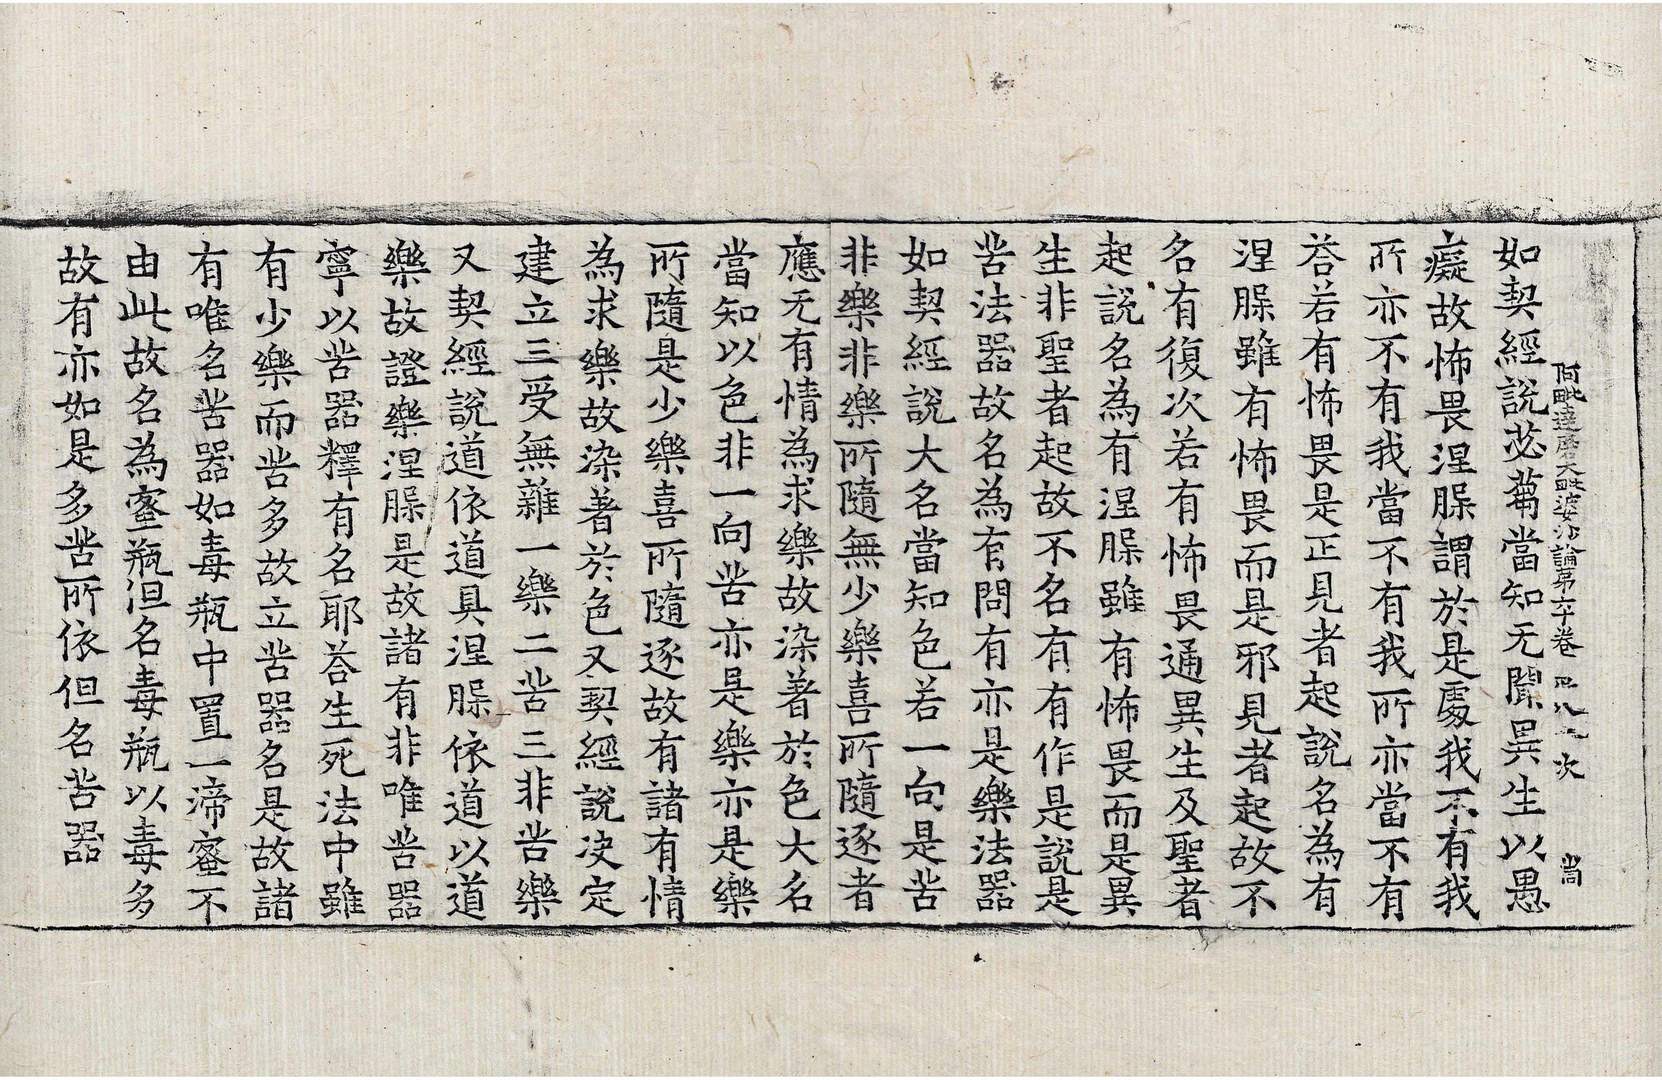 阿毗達磨大毗婆沙論第六十卷 次 當
如契經說苾蒭當知无聞異生以愚
癡故怖畏涅䐶謂於是處我不有我
所亦不有我當不有我所亦當不有
荅若有怖畏是正見者起說名為有
涅䐶雖有怖畏而是邪見者起故不
名有復次若有怖畏通異生及聖者
起說名為有涅䐶雖有怖畏而是異
生非聖者起故不名有有作是說是
苦法器故名為有問有亦是樂法器
如契經說大名當知色若一向是苦
非樂非樂所隨無少樂喜所隨逐者
應无有情為求樂故染著於色大名
當知以色非一向苦亦是樂亦是樂
所隨是少樂喜所隨逐故有諸有情
為求樂故染著於色又契經說決定
建立三受無雜一樂二苦三非苦樂
又契經說道依道具涅䐶依道以道
樂故證樂涅䐶是故諸有非唯苦器
寧以苦器釋有名耶荅生死法中雖
有少樂而苦多故立苦器名是故諸
有唯名苦器如毒瓶中置一渧蜜不
由此故名為蜜瓶但名毒瓶以毒多
故有亦如是多苦所依但名苦器